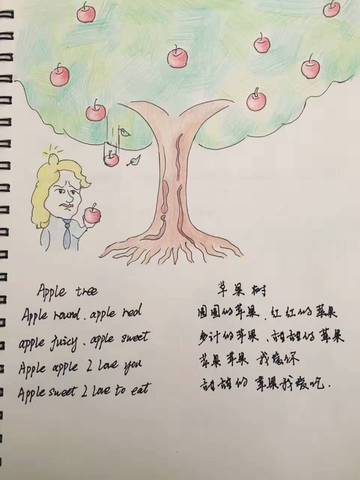 Apple tree
Apple round, apple red
apple juicy, apple sweet
Apple apple I love you
Apple sweet I love to eat
苹果树
圆圆的苹果、红红的苹果
多汁的苹果、甜甜的苹果
苹果苹果我爱你
甜甜的苹果我爱吃.